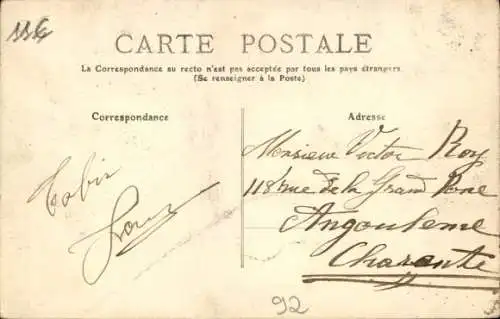 CARTE POSTALE
La Correspondance au recto n'est pas acceptée par tous les pays étrangers
(Se renseigner à la Poste)
Correspondance
Adresse
Monsieur Victor Roy
118 rue de la Grand
Angouleme
Charente
92